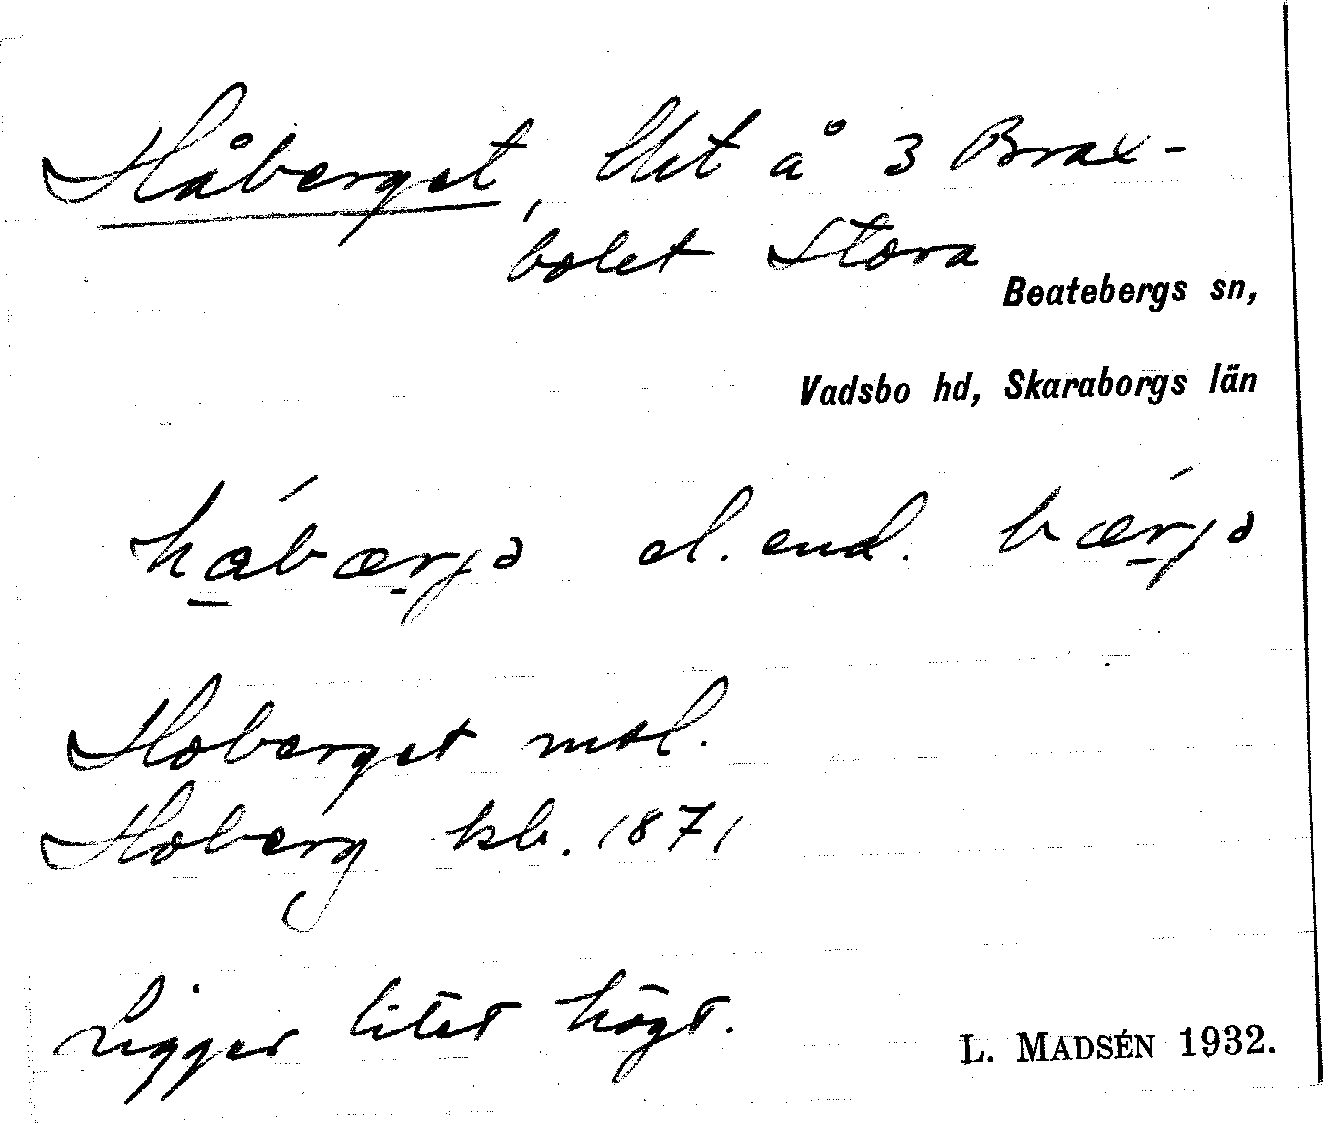 Håberget, lht å 3 Brax-
bolet Stora
Beatebergs sn,
Vadsbo hd, Skaraborgs län
habærjə el. end. bærjə
Hoberget msl.
Hoberg kb. 1871
Ligger litet högt.
L. MADSÉN 1932.